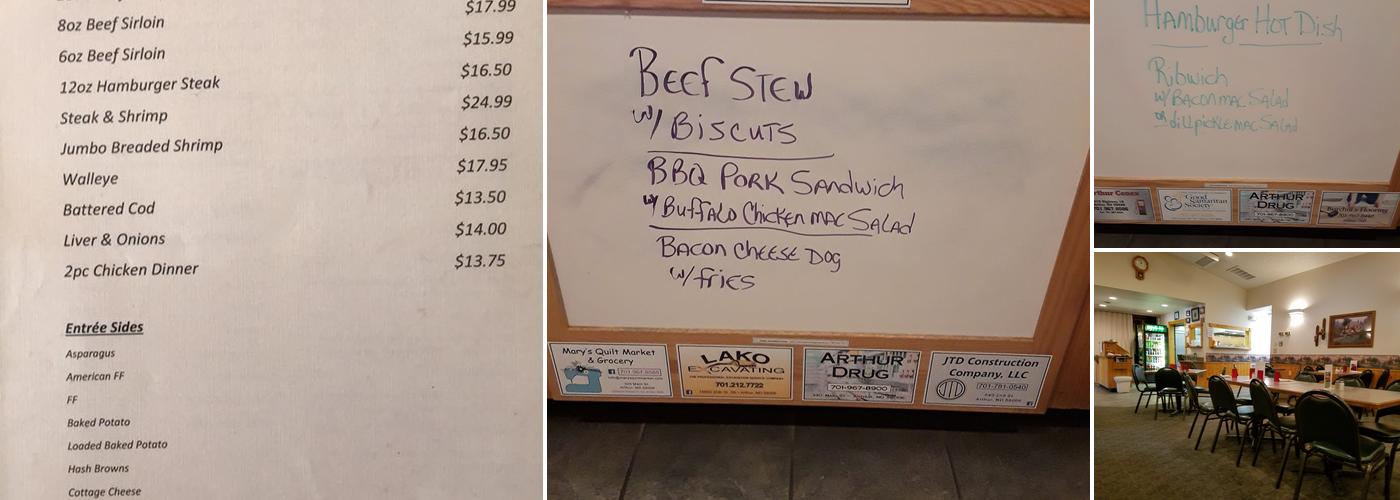 8oz Beef Sirloin $17.99
6oz Beef Sirloin $15.99
12oz Hamburger Steak $16.50
Steak & Shrimp $24.99
Jumbo Breaded Shrimp $16.50
Walleye $17.95
Battered Cod $13.50
Liver & Onions $14.00
2pc Chicken Dinner $13.75
Entrée Sides
Asparagus
American FF
FF
Baked Potato
Loaded Baked Potato
Hash Browns
Cottage Cheese
Beef Stew
w/ Biscuts
BBQ Pork Sandwich
w/ Buffalo Chicken mac Salad
Bacon Cheese Dog
w/ fries
Mary's Quilt Market
& Grocery
LAKO
EXCAVATING
701.212.7722
ARTHUR
DRUG
701-967-8900
JTD Construction
Company, LLC
JTD
701-781-0540
Hamburger Hot Dish
Ribwich
w/ Bacon mac Salad
or dill pickle mac Salad
Arthur Cenex
Good
Samaritan
Society
ARTHUR
DRUG
701-967-8900